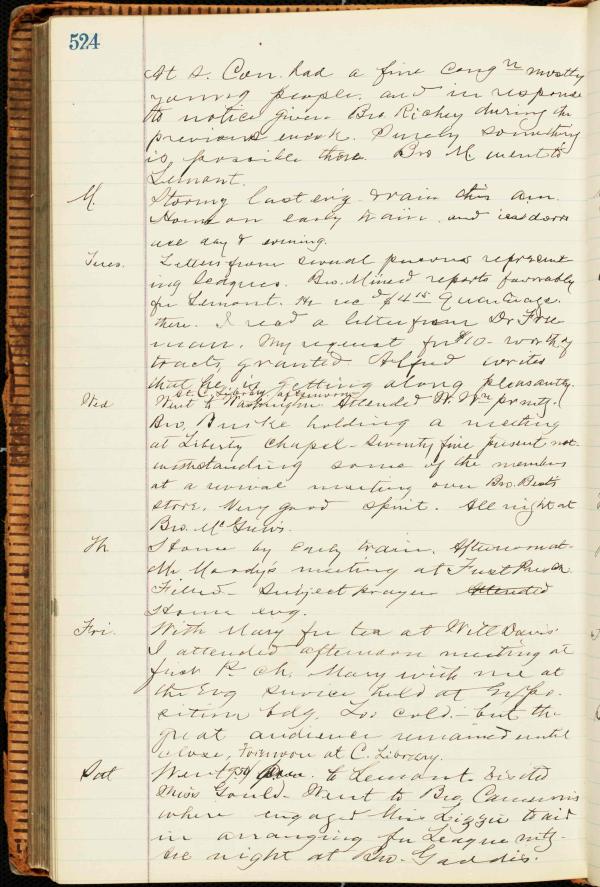 524
At S. Con. had a fine congn mostly
young people. and in response
to notice given Bro Richey during the
previous week. Surely something
is possible there. Bro M. went to
Lemont.
M. Stormy last evg. & rain this am.
Home on early train. and indoors
all day & evening.
Tues. Letters from several persons represent
ing leagues. Bro. Minerd reports favorably
for Lemont. He recd $4 15 Quarterage
there. I read a letter from Dr Free
man. My request for $10- worth of
tracts granted. Alfred writes
that he is getting along pleasantly.
At C. Library afternoon
Wed Went to Washington Attended W. Wn pr mtg.
Bro. Burke holding a meeting
at Liberty Chapel - seventy five present not
withstanding some of the members
at a revival meeting over Bro. Beats
store. Very good spirit. All night at
Bro. McGrew's.
Th Home by early train. Afternoon at
Mr Moody's meeting at First Pres Ch
Filled - Subject prayer Attended
Home evg.
Fri. With Mary for tea at Will Davis'
I attended afternoon meeting at
first P. ch. Mary with me at
the Evg service held at Expo-
sition bdg. Too cold - but the
great audience remained until
close. Forenoon at C. Library.
Sat Went to Lemont. Visited
Miss Gould. Went to Bro. Cameron's
where engaged Miss Lizzie to aid
in arranging for League mtg.
All night at Bro. Gaddis.